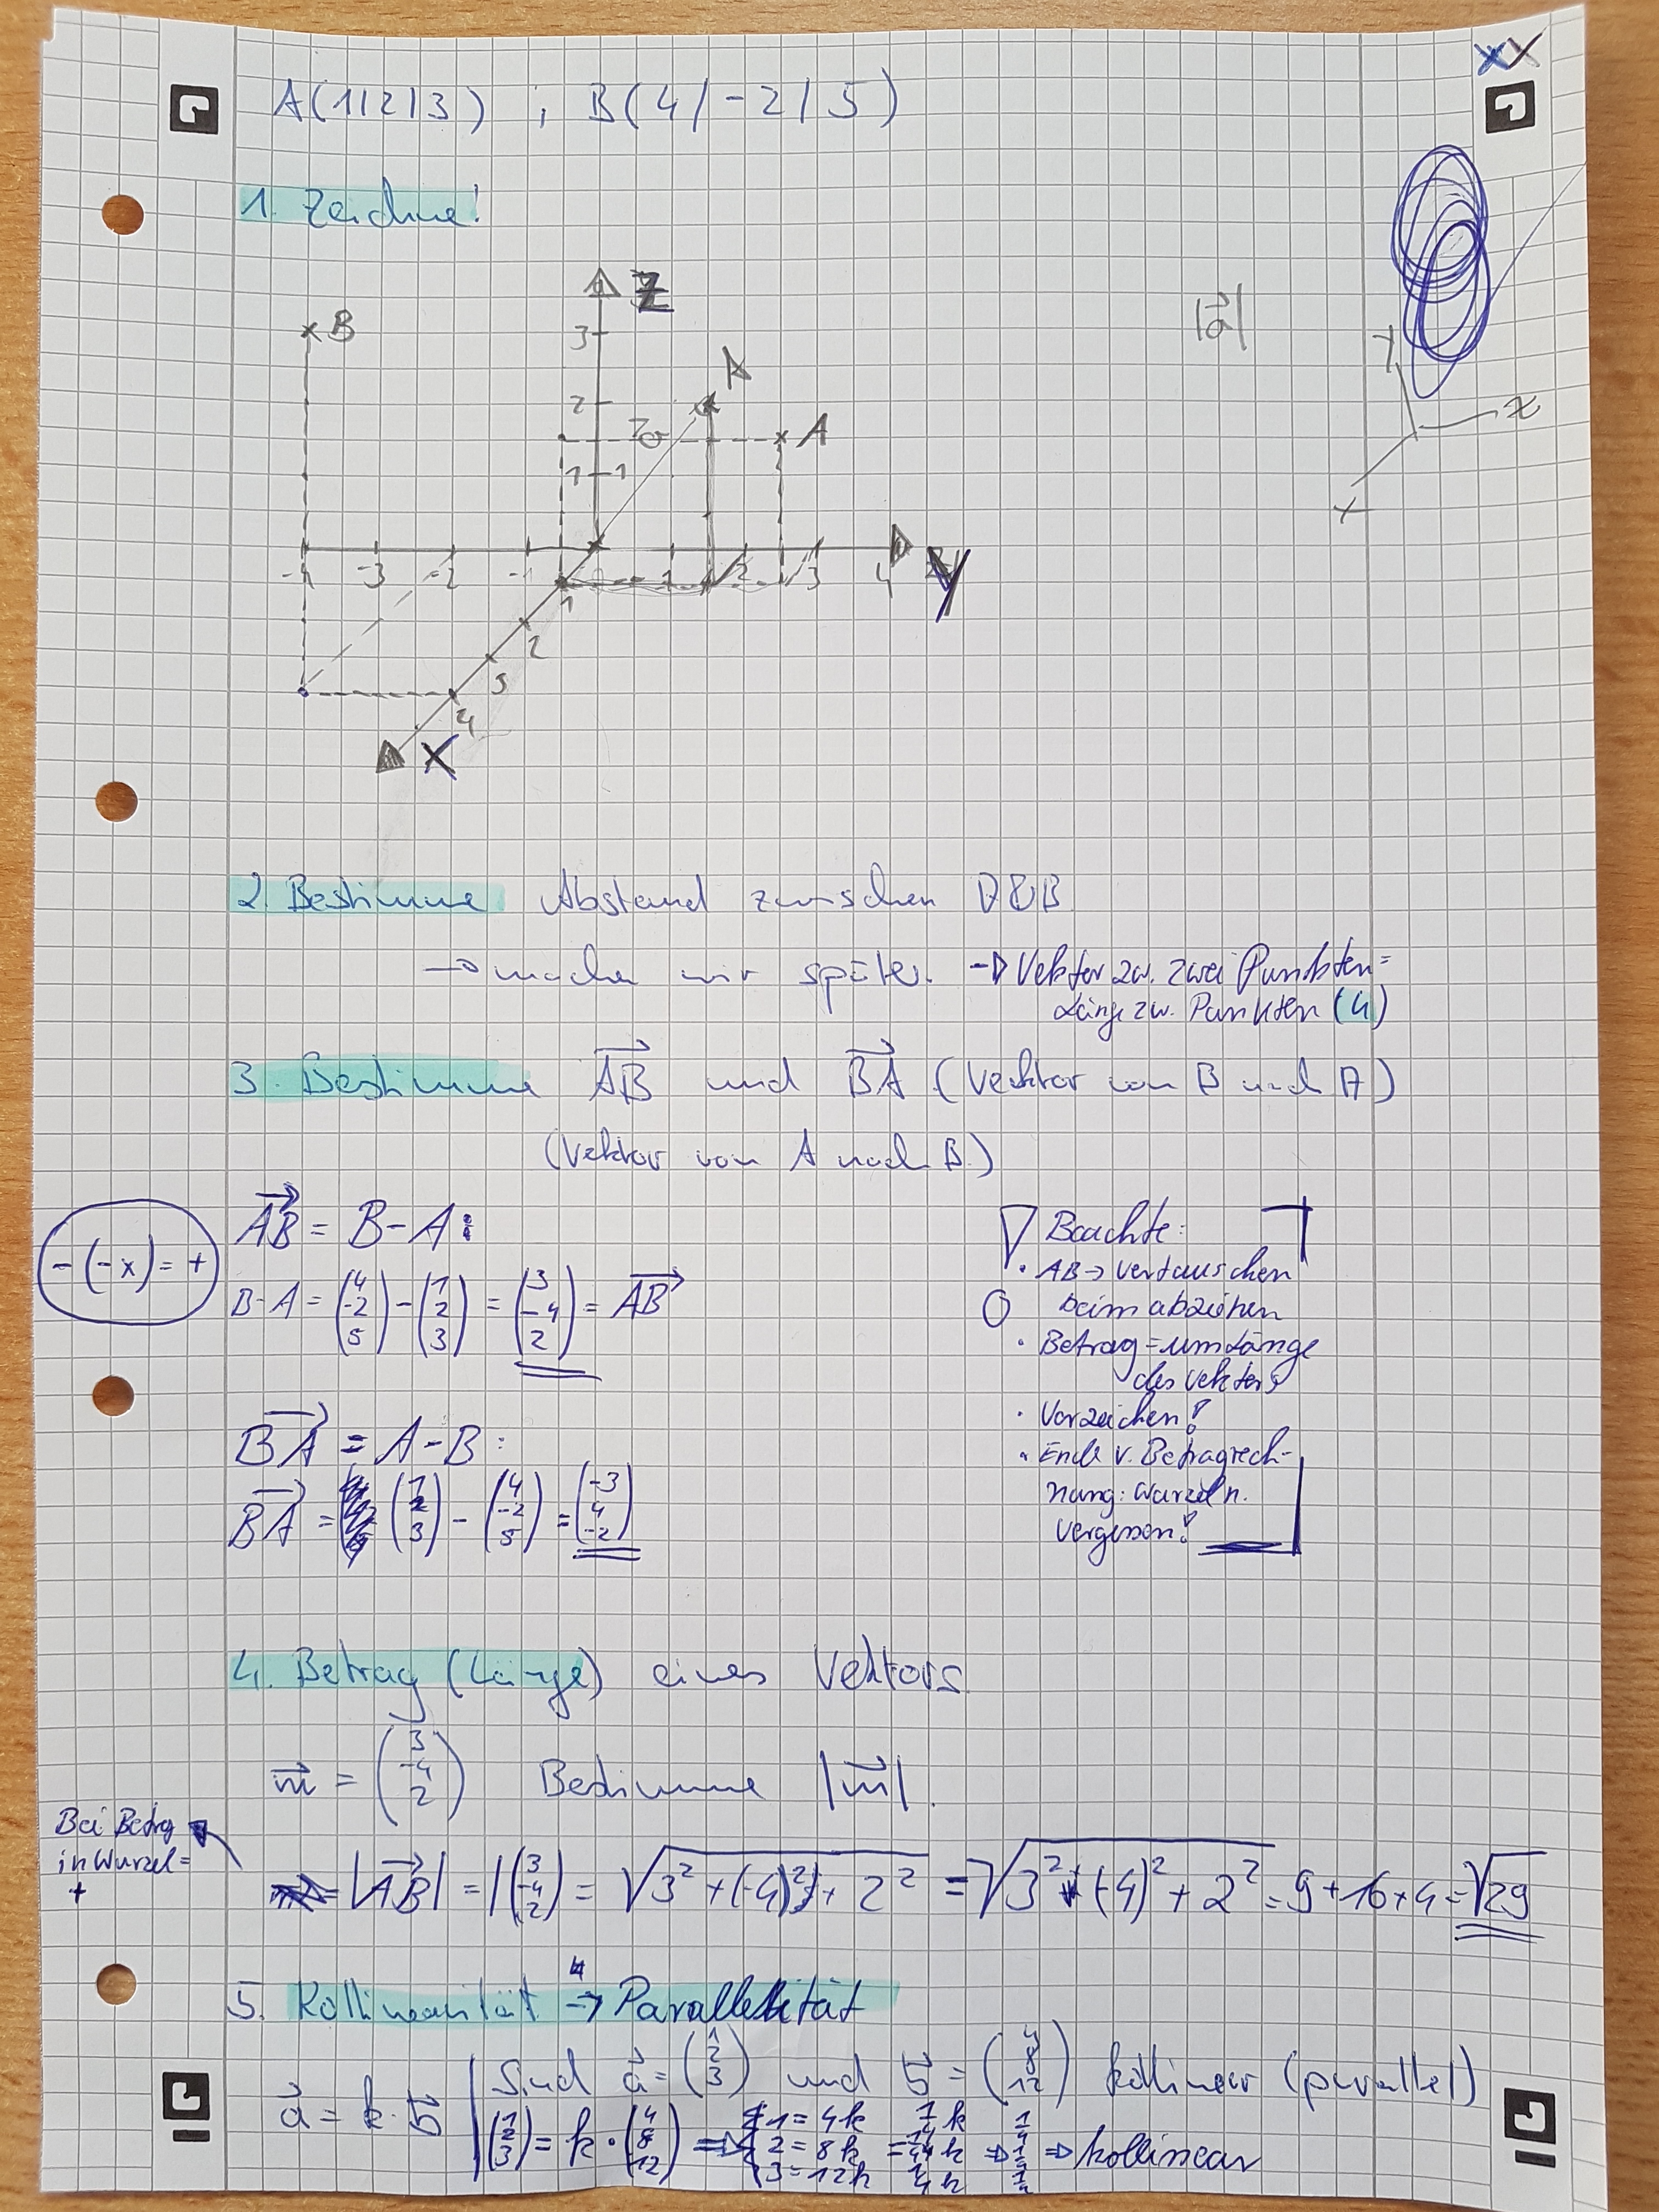 xX
A(1|2|3) ; B(4/-2/5)
1. Zeichne!
Z
B
3
A
|a⃗|
y
z
x
2
A
1 1
-4 -3 -2 -1 1 2 3 4 Y
1
2
3
4
X
2. Bestimme Abstand zwischen A & B
→ machen wir später. → Vektor zw. zwei Punkten =
Länge zw. Punkten (4)
3. Bestimme A⃗B⃗ und B⃗A⃗ (Vektor von B nach A)
(Vektor von A nach B.)
-(-x) = +
A⃗B⃗ = B-A:
B-A = (4 -2 5) - (1 2 3) = (3 -4 2) = A⃗B⃗
B⃗A⃗ = A-B:
B⃗A⃗ = (1 2 3) - (4 -2 5) = (-3 4 -2)
Beachte:
• AB → vertauschen
beim abziehen
• Betrag = um Länge
des Vektors
• Vorzeichen!
• Ende v. Betragrech-
nung: Wurzel n.
vergessen!
4. Betrag (Länge) eines Vektors.
m⃗ = (3 -4 2) Bestimme |m⃗|.
Bei Betrag
in Wurzel =
+
|A⃗B⃗| = |(3 -4 2) = √3² + (-4)² + 2² = √3² + (-4)² + 2² = 9 + 16 + 4 = √29
5. Kollinearität → Parallelität
a⃗ = k · b⃗ | Sind a⃗ = (1 2 3) und b⃗ = (4 8 12) kollinear (parallel)
(1 2 3) = k · (4 8 12) ⇒
1 = 4k
2 = 8k
3 = 12k
⇒ kollinear